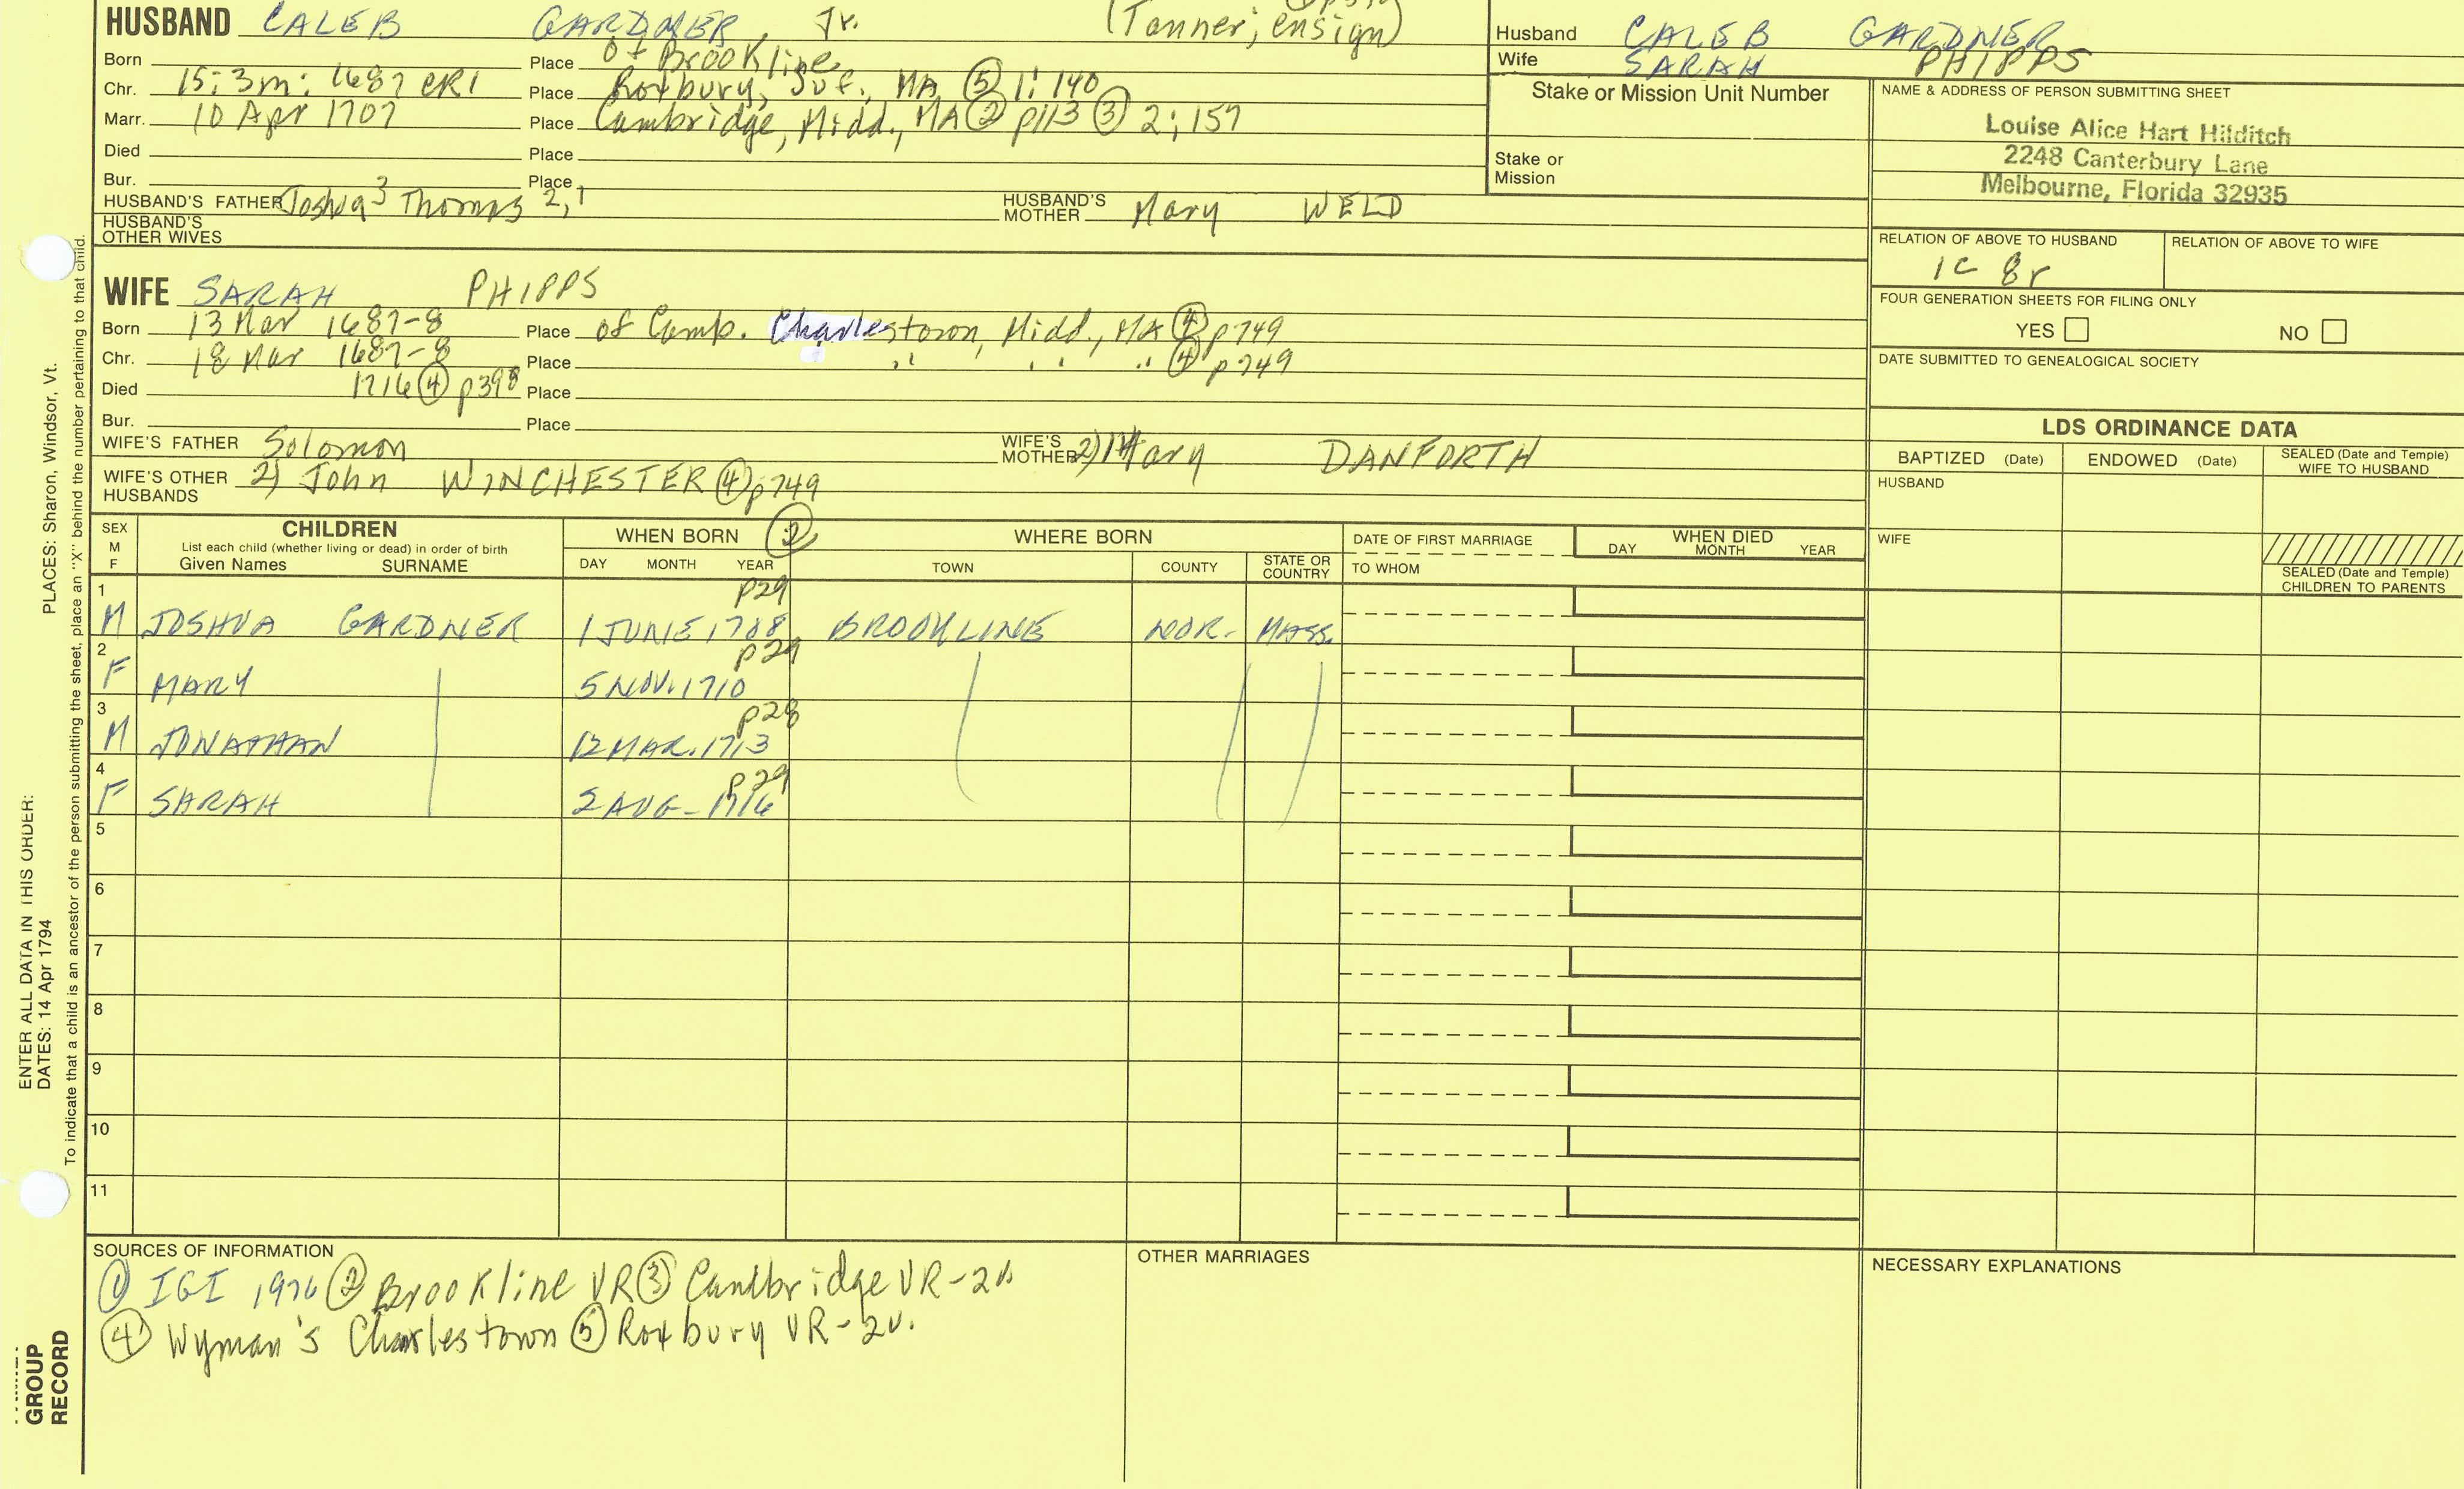 HUSBAND CALEB GARDNER, Jr. (Tanner; ensign)
Born Place of Brookline
Chr. 15: 3m: 1687 CR1 Place Roxbury, Suf., MA ⑤ 1: 140
Marr. 10 Apr 1707 Place Cambridge, Midd., MA ② p113 ③ 2; 157
Died Place
Bur. Place
HUSBAND'S FATHER Joshua 3 Thomas 2, 1 HUSBAND'S MOTHER Mary WELD
HUSBAND'S OTHER WIVES
Husband CALEB GARDNER
Wife SARAH PHIPPS
Stake or Mission Unit Number
Stake or Mission
NAME & ADDRESS OF PERSON SUBMITTING SHEET
Louise Alice Hart Hilditch
2248 Canterbury Lane
Melbourne, Florida 32935
RELATION OF ABOVE TO HUSBAND RELATION OF ABOVE TO WIFE
1C 8r
FOUR GENERATION SHEETS FOR FILING ONLY
YES NO
DATE SUBMITTED TO GENEALOGICAL SOCIETY
WIFE SARAH PHIPPS
Born 13 Mar 1687-8 Place of Camb. Charlestown, Midd., MA ④ p749
Chr. 18 Mar 1687-8 Place " " " ④ p749
Died 1716 ④ p398 Place
Bur. Place
WIFE'S FATHER Solomon WIFE'S MOTHER 2) Mary DANFORTH
WIFE'S OTHER HUSBANDS 2) John WINCHESTER ④ p749
LDS ORDINANCE DATA
BAPTIZED (Date) ENDOWED (Date) SEALED (Date and Temple) WIFE TO HUSBAND
HUSBAND
WIFE
SEALED (Date and Temple) CHILDREN TO PARENTS
SEX M F
CHILDREN
List each child (whether living or dead) in order of birth
Given Names SURNAME
WHEN BORN ②
DAY MONTH YEAR
WHERE BORN
TOWN COUNTY STATE OR COUNTRY
DATE OF FIRST MARRIAGE
TO WHOM
WHEN DIED
DAY MONTH YEAR
1 p29
M JOSHUA GARDNER 1 JUNE 1708 BROOKLINE NOR- MASS.
2 p29
F MARY 5 NOV. 1710
3 p28
M JONATHAN 12 MAR. 1713
4 p29
F SARAH 2 AUG- 1716
5
6
7
8
9
10
11
SOURCES OF INFORMATION
① IGI 1976 ② Brookline VR ③ Cambridge VR-2v
④ Wyman's Charlestown ⑤ Roxbury VR-2v.
OTHER MARRIAGES
NECESSARY EXPLANATIONS
PLACES: Sharon, Windsor, Vt.
To indicate that a child is an ancestor of the person submitting the sheet, place an "X" behind the number pertaining to that child.
ENTER ALL DATA IN THIS ORDER:
DATES: 14 Apr 1794
GROUP
RECORD